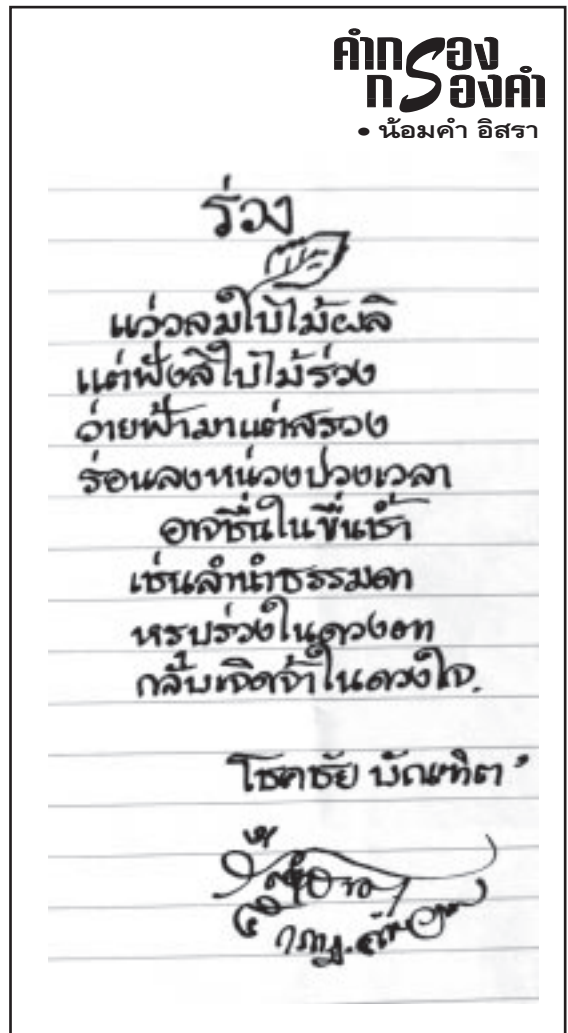 คำกรอง
กรองคำ
• น้อมคำ อิสรา
ร่วง
แว่วลมใบไม้ผลิ
แต่ฟังสิใบไม้ร่วง
ว่ายฟ้ามาแต่สรวง
ร่อนลงหน่วงปวงเวลา
อาจชื่นในขื่นช้ำ
เช่นลำนำธรรมดา
หรุบร่วงในดวงตา
กลับเจิดจ้าในดวงใจ.
โชคชัย บัณฑิต'